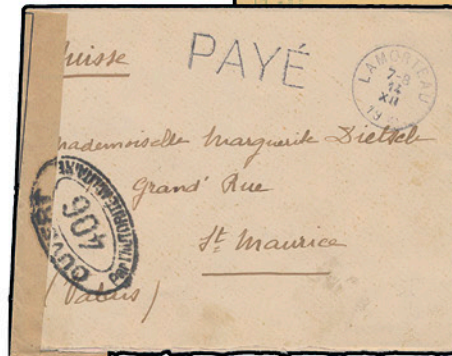 uisse
PAYÉ
LAMORTEAU
7-8
14
XII
19
ademoiselle Marguerite Dietsch
Grand' Rue
St Maurice
(Valais)
OUVERT
PAR L'AUTORITÉ MILITAIRE
406